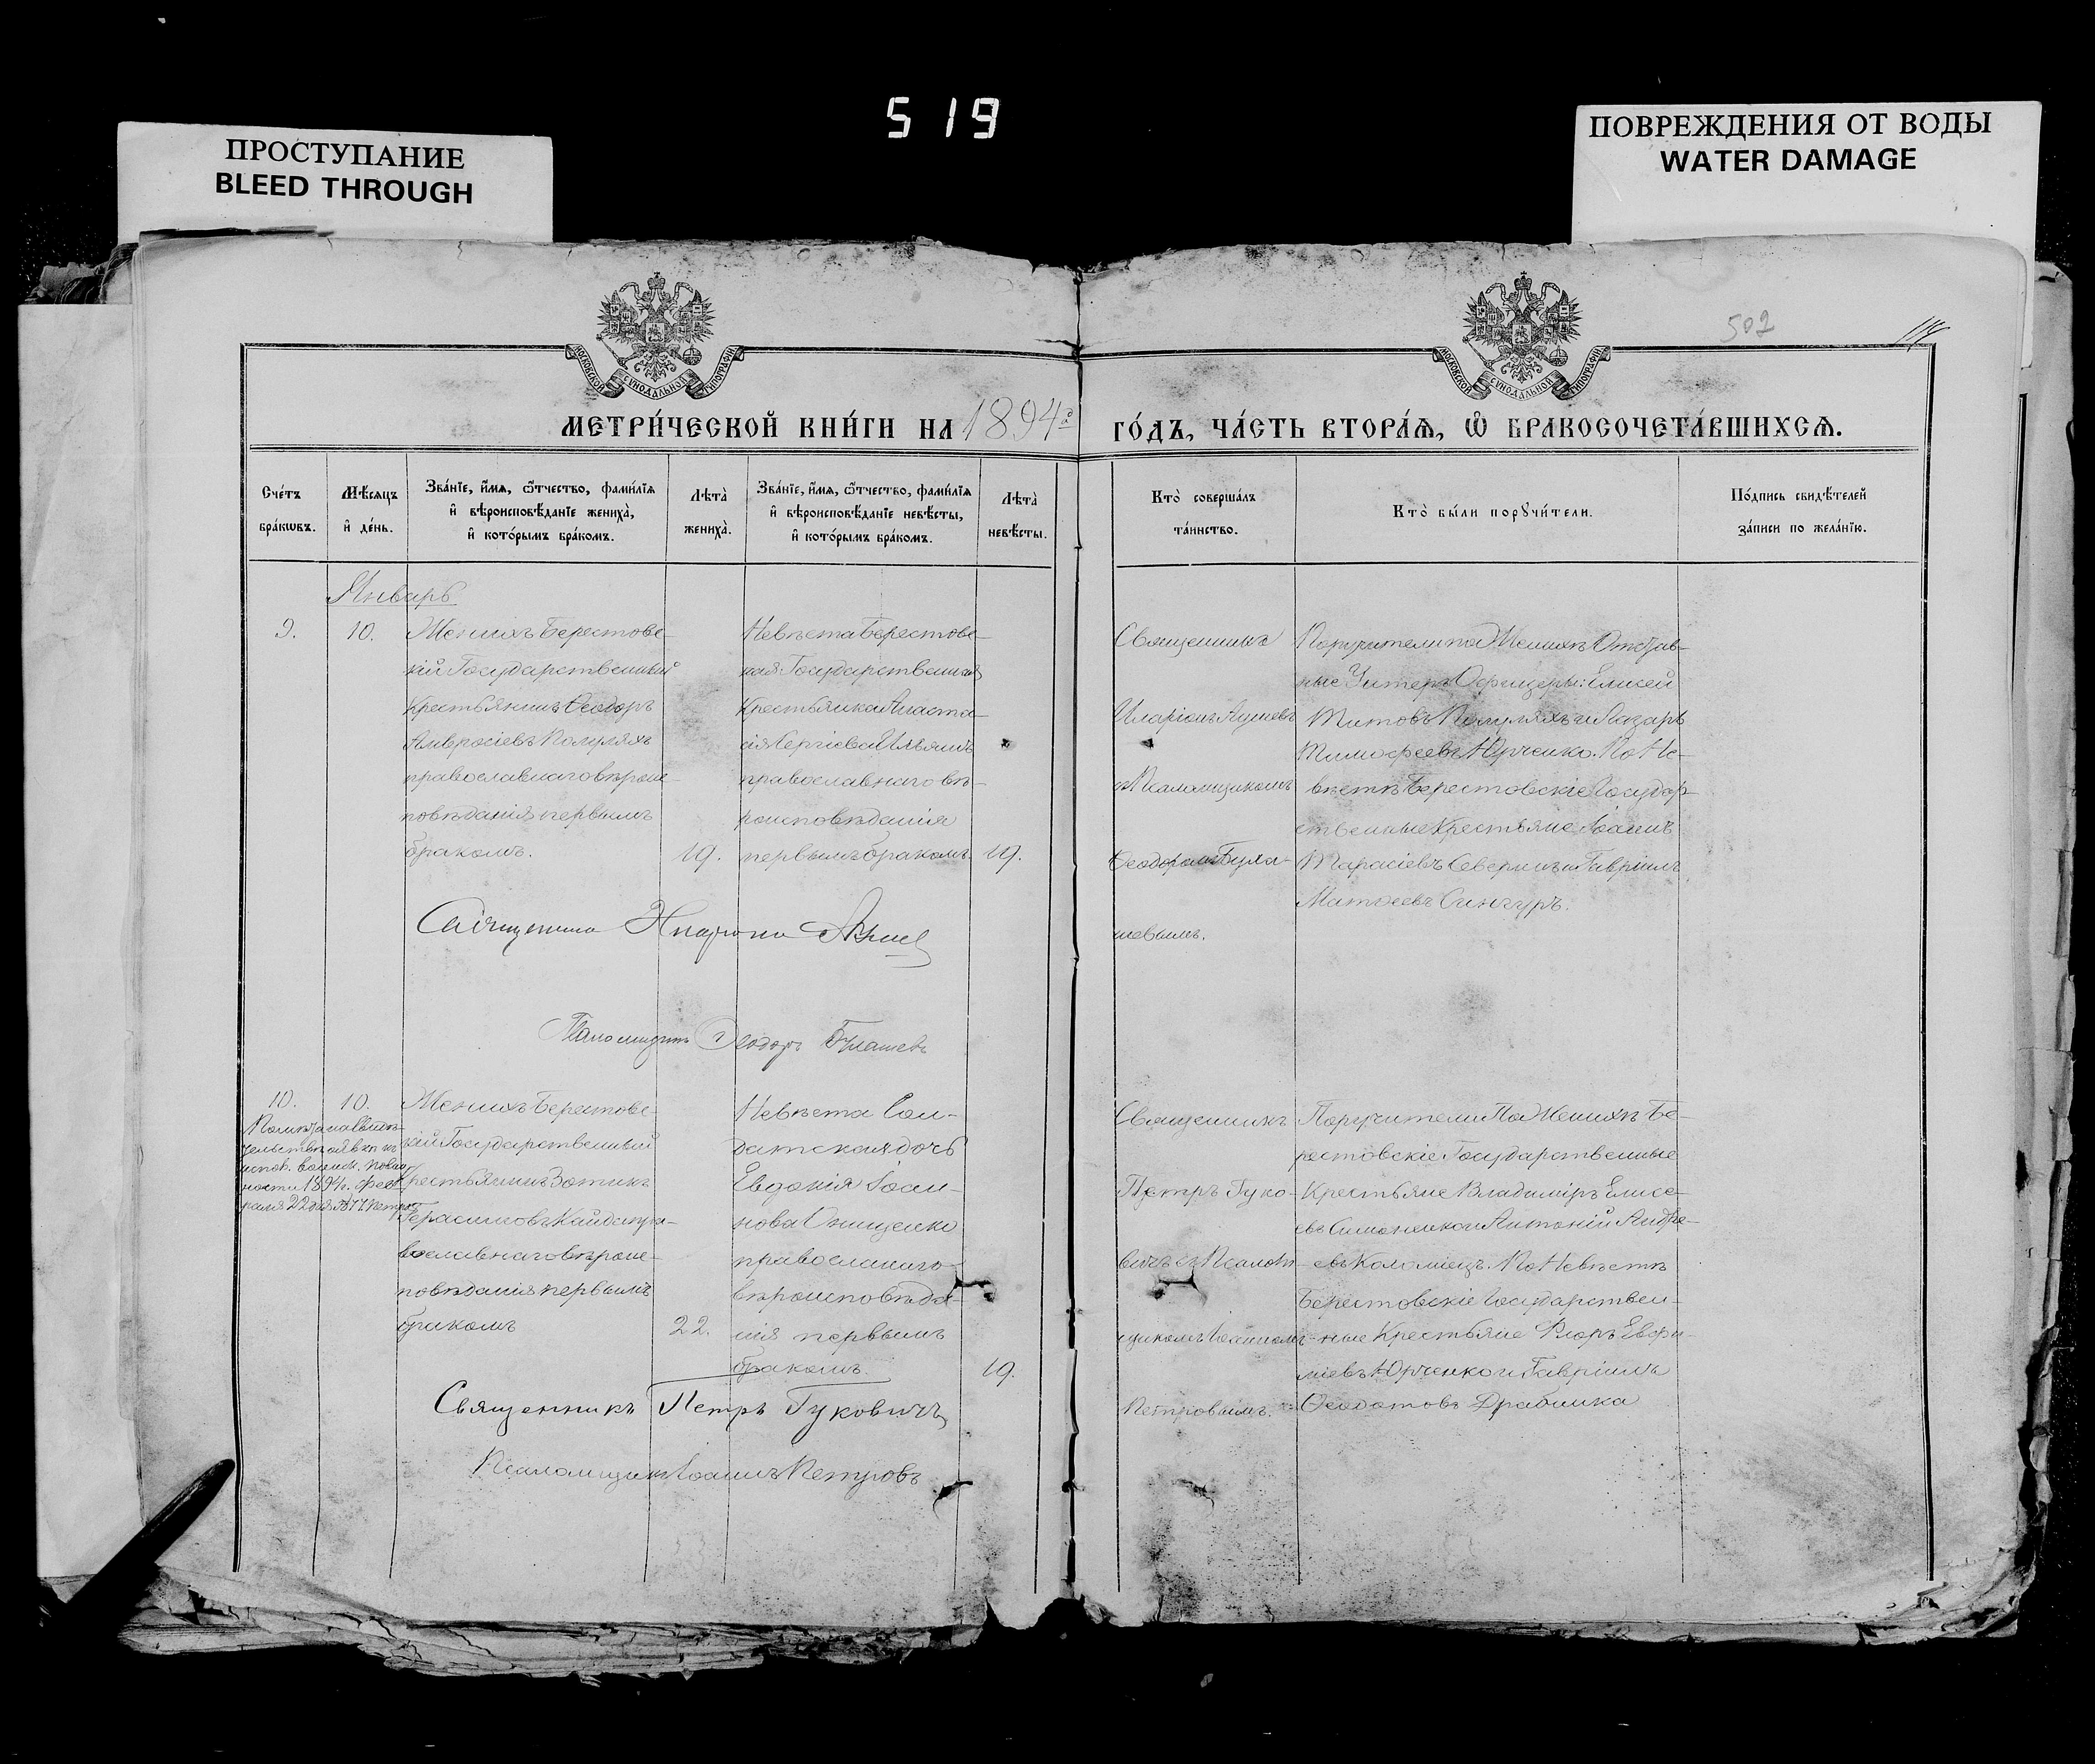 519
ПРОСТУПАНИЕ
BLEED THROUGH
ПОВРЕЖДЕНИЯ ОТ ВОДЫ
WATER DAMAGE
МОСКОВСКОЙ СѴНОДАЛЬНОЙ ТИПОГРАФІИ
МОСКОВСКОЙ СѴНОДАЛЬНОЙ ТИПОГРАФІИ
502
МЕТРИ́ЧЕСКОЙ КНИ́ГИ НА 1894й
ГО́ДЪ, ЧА́СТЬ ВТОРА́Я, Ѽ БРАКОСОЧЕТА́ВШИХСЯ.
Сче́тъ
бра́кѡвъ.
Мѣ́сяцъ
и҆ де́нь.
Зва́нїе, и҆́мя, ѻ҆́тчество, фами́лїя
и҆ вѣроисповѣ́данїе жениха̀,
и҆ кото́рымъ бра́комъ.
Лѣта̀
жениха̀.
Зва́нїе, и҆́мя, ѻ҆́тчество, фами́лїя
и҆ вѣроисповѣ́данїе невѣ́сты,
и҆ кото́рымъ бра́комъ.
Лѣта̀
невѣ́сты.
Кто̀ соверша́лъ
та́инство.
Кто̀ бы́ли порꙋчи́тели.
По́дпись свидѣ́телей
за́писи по жела́нїю.
Январь
9.
10.
Женихъ Берестовс-
кій Государственный
Крестьянинъ Ѳеодоръ
Амвросіевъ Полуляхъ
православнаго вѣроис-
повѣданія первымъ
бракомъ.
19.
Невѣста Берестовс-
кая Государственная
Крестьянка Анаста-
сія Сергіева Ильяшъ
православнаго вѣ-
роисповѣданія
первымъ бракомъ.
19.
Священникъ
Иларіонъ
съ Псаломщикомъ
Ѳеодоромъ Була-
шевымъ.
Поручители по Женихѣ Отстав-
ные Унтеръ Офицеры: Елисей
Титовъ Полуляхъ и Лазарь
Тимофеевъ Юрченко. По Не-
вѣстѣ Берестовскіе Государ-
ственные Крестьяне Іоаннъ
Тарасіевъ Северинъ и Гавріилъ
Матѳеевъ Сингуръ.
Священникъ
Псаломщикъ Ѳеодоръ Булашевъ
10.
10.
1894 г. Фев-
раля 22 дня
Женихъ Берестовс-
кій Государственный
Крестьянинъ Зотикъ
Герасимовъ Кайда пра-
вославнаго вѣроис-
повѣданія первымъ
бракомъ
22.
Невѣста Сол-
датская дочь
Евдокія Іоан-
нова Онищенко
православнаго
вѣроисповѣда-
нія первымъ
бракомъ.
19.
Священникъ
Петръ Гуко-
вичъ съ Псалом-
щикомъ Іоанномъ
Петровымъ.
Поручители По Женихѣ Бе-
рестовскіе Государственные
Крестьяне Владиміръ Елисе-
евъ Симоненко и Антоній Андре-
евъ Коломіецъ. По Невѣстѣ
Берестовскіе Государствен-
ные Крестьяне Флоръ Евфи-
міевъ Юрченко и Гавріилъ
Ѳеодотовъ Драбинка
Священникъ Петръ Гуковичъ
Псаломщикъ Іоаннъ Петровъ